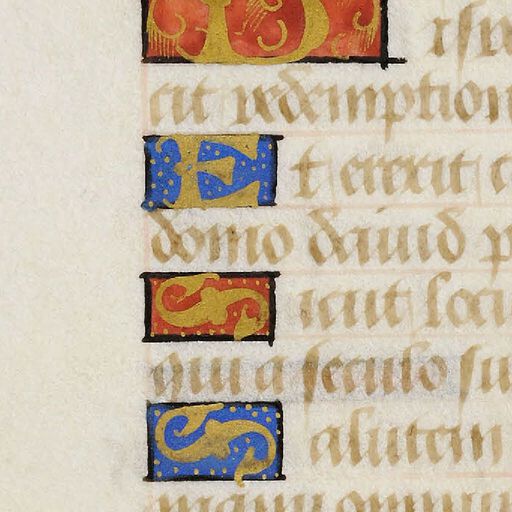 cit redemption
Et erexit c
domo dauid p
Sicut locu
qui a seculo su
Salutem